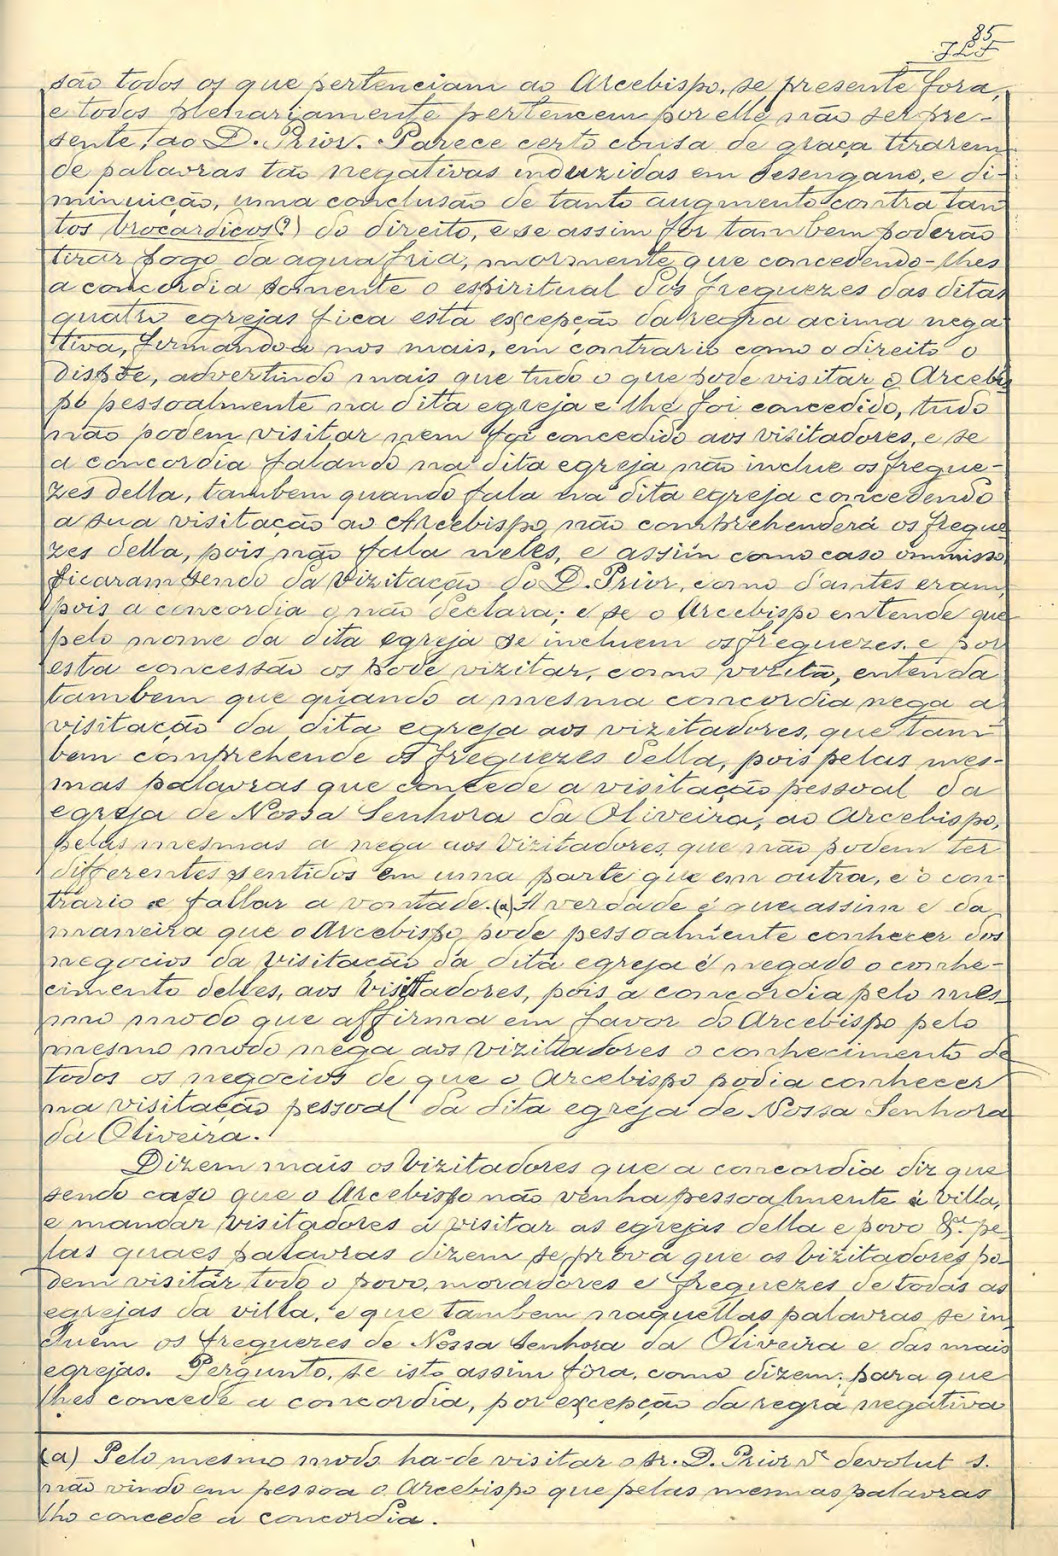 85
JLF
são todos os que pertenciam ao Arcebispo, se presente fora,
e todos plenariamente pertencem por elle não ser pre-
sente, ao D. Prior. Parece certo cousa de graça tirarem
de palavras tão negativas induzidas em desengano, e di-
minuição, uma conclusão de tanto augmento contra tan
tos brocardicos(?) do direito, e se assim for tambem poderão
tirar fogo da agua fria, mormente que concedendo-lhes
a concordia somente o espiritual dos freguezes das ditas
quatro egrejas fica esta excepção da regra acima nega
tiva, firmando-a nos mais, em contrario como o direito o
dispõe, advertindo mais que tudo o que pode visitar o Arcebis
po pessoalmente na dita egreja e lhe foi concedido, tudo
não podem visitar nem foi concedido aos visitadores, e se
a concordia falando na dita egreja não inclue os fregue-
zes della, tambem quando fala na dita egreja concedendo
a sua visitação ao Arcebispo, não comprehenderá os fregue
zes della, pois não fala neles, e assim como caso ommisso
ficaram sendo da vizitação do D. Prior, como d'antes eram,
pois a concordia o não declara; e se o Arcebispo entende que
pelo nome da dita egreja se incluem os freguezes, e por
esta concessão os pode vizitar, como vizita, entenda
tambem que quando a mesma concordia nega a
visitação da dita egreja aos vizitadores, que tam
bem comprehende os freguezes della, pois pelas mes-
mas palavras que concede a visitação pessoal da
egreja de Nossa Senhora da Oliveira, ao Arcebispo,
pelas mesmas a nega aos Vizitadores, que não podem ter
differentes sentidos em uma parte que em outra, e o con-
trario e fallar a vontade. (a) A verdade é que assim e da
maneira que o Arcebispo pode pessoalmente conhecer dos
negocios da visitação da dita egreja é negado o conhe-
cimento delles, aos Visitadores, pois a concordia pelo mes-
mo modo que affirma em favor do Arcebispo pelo
mesmo modo nega aos vizitadores o conhecimento de
todos os negocios de que o Arcebispo podia conhecer
na visitação pessoal da dita egreja de Nossa Senhora
da Oliveira.
Dizem mais os Vizitadores que a concordia diz que
sendo caso que o Arcebispo não venha pessoalmente á villa,
e mandar visitadores a visitar as egrejas della e povo &.ª pe
las quaes palavras dizem se prova que os Vizitadores po-
dem visitar todo o povo, moradores e freguezes de todas as
egrejas da villa, e que tambem naquellas palavras se in
cluem os freguezes de Nossa Senhora da Oliveira e das mais
egrejas. Pergunto, se isto assim fôra, como dizem, para que
lhes concede a concordia, por excepção da regra negativa
(a) Pelo mesmo modo ha-de visitar o sr. D. Prior devolut s.
não vindo em pessoa o Arcebispo que pelas mesmas palavras
lho concede a concordia.